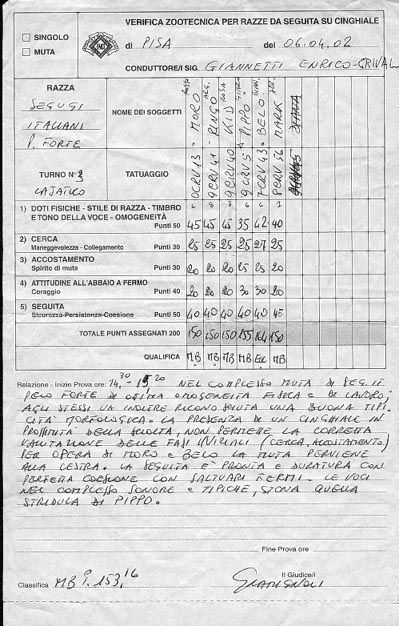 VERIFICA ZOOTECNICA PER RAZZE DA SEGUITA SU CINGHIALE
SINGOLO
MUTA
di PISA del 06.04.02
CONDUTTORE/I SIG. GIANNETTI ENRICO-
RAZZA
SEGUGI
ITALIANI
P. FORTE
NOME DEI SOGGETTI
MORO RINGO KID PIPPO BELO MARK
TURNO N° 2
LAJATICO
TATUAGGIO
1) DOTI FISICHE - STILE DI RAZZA - TIMBRO
E TONO DELLA VOCE - OMOGENEITÀ Punti 50
45 45 45 35 42 40
2) CERCA
Maneggevolezza - Collegamento Punti 30
25 25 25 25 27 25
3) ACCOSTAMENTO
Spirito di muta Punti 30
20 20 20 25 25 20
4) ATTITUDINE ALL'ABBAIO A FERMO
Coraggio Punti 40
20 20 20 30 30 20
5) SEGUITA
Sicurezza-Persistenza-Coesione Punti 50
40 40 40 40 40 45
TOTALE PUNTI ASSEGNATI 200
150 150 150 155 164 150
QUALIFICA
MB MB MB MB Ecc MB
Relazione - Inizio Prova ore: 14,30 - 15,20 NEL COMPLESSO MUTA DI SEG. IT
PELO FORTE DI OTTIMA OMOGENEITÀ FISICA E DI LAVORO,
AGLI STESSI VA INOLTRE RICONOSCIUTA UNA BUONA TIPI
CITÀ MORFOLOGICA. LA PRESENZA DI UN CINGHIALE IN
PROSSIMITÀ DELLA SCIOLTA, NON PERMETTE LA CORRETTA
VALUTAZIONE DELLE FASI INIZIALI (CERCA, ACCOSTAMENTO)
PER OPERA DI MORO E BELO LA MUTA PERVIENE
ALLA LESTRA. LA SEGUITA È PRONTA E DURATURA CON
PERFETTA COESIONE CON SALTUARI FERMI. LE VOCI
NEL COMPLESSO SONORE E TIPICHE, STONA QUELLA
STRIDULA DI PIPPO.
Fine Prova ore
Classifica MB P. 153,16
Il Giudice/i